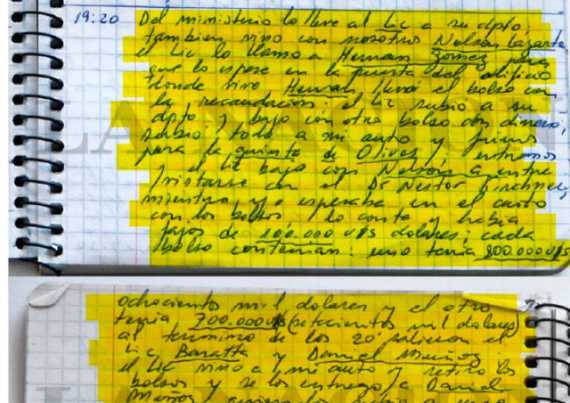 19:20 Del ministerio lo lleve al Lic a su dpto;
tambien vino con nosotros Nelson Lazarte,
el Lic lo llamo a Hernan Gomez para
que lo espere en la puerta del edificio
donde vive Hernan, llevó el bolso con
la recaudacion; el Lic subió a su
dpto y bajo con otro bolso con dinero,
subió todo a mi auto y fuimos
para la quinta de Olivos, entramos
y el Lic bajo con Nelson a entre
vistarse con el Dr Nestor Kirchner,
mientras yo esperaba en el auto
con los bolsos, los conte y habia
fajos de 100.000 u$s dolares; cada
bolso contenian: uno tenia 800.000 u$s
ochocientos mil dolares y el otro
tenia 700.000 u$s (setecientos mil dolares)
al termino de los 20 minutos el
Lic Baratta y Daniel Muñoz;
el Lic vino a mi auto y retiro los
bolsos y se los entrego a Daniel
Muñoz
LA NACION